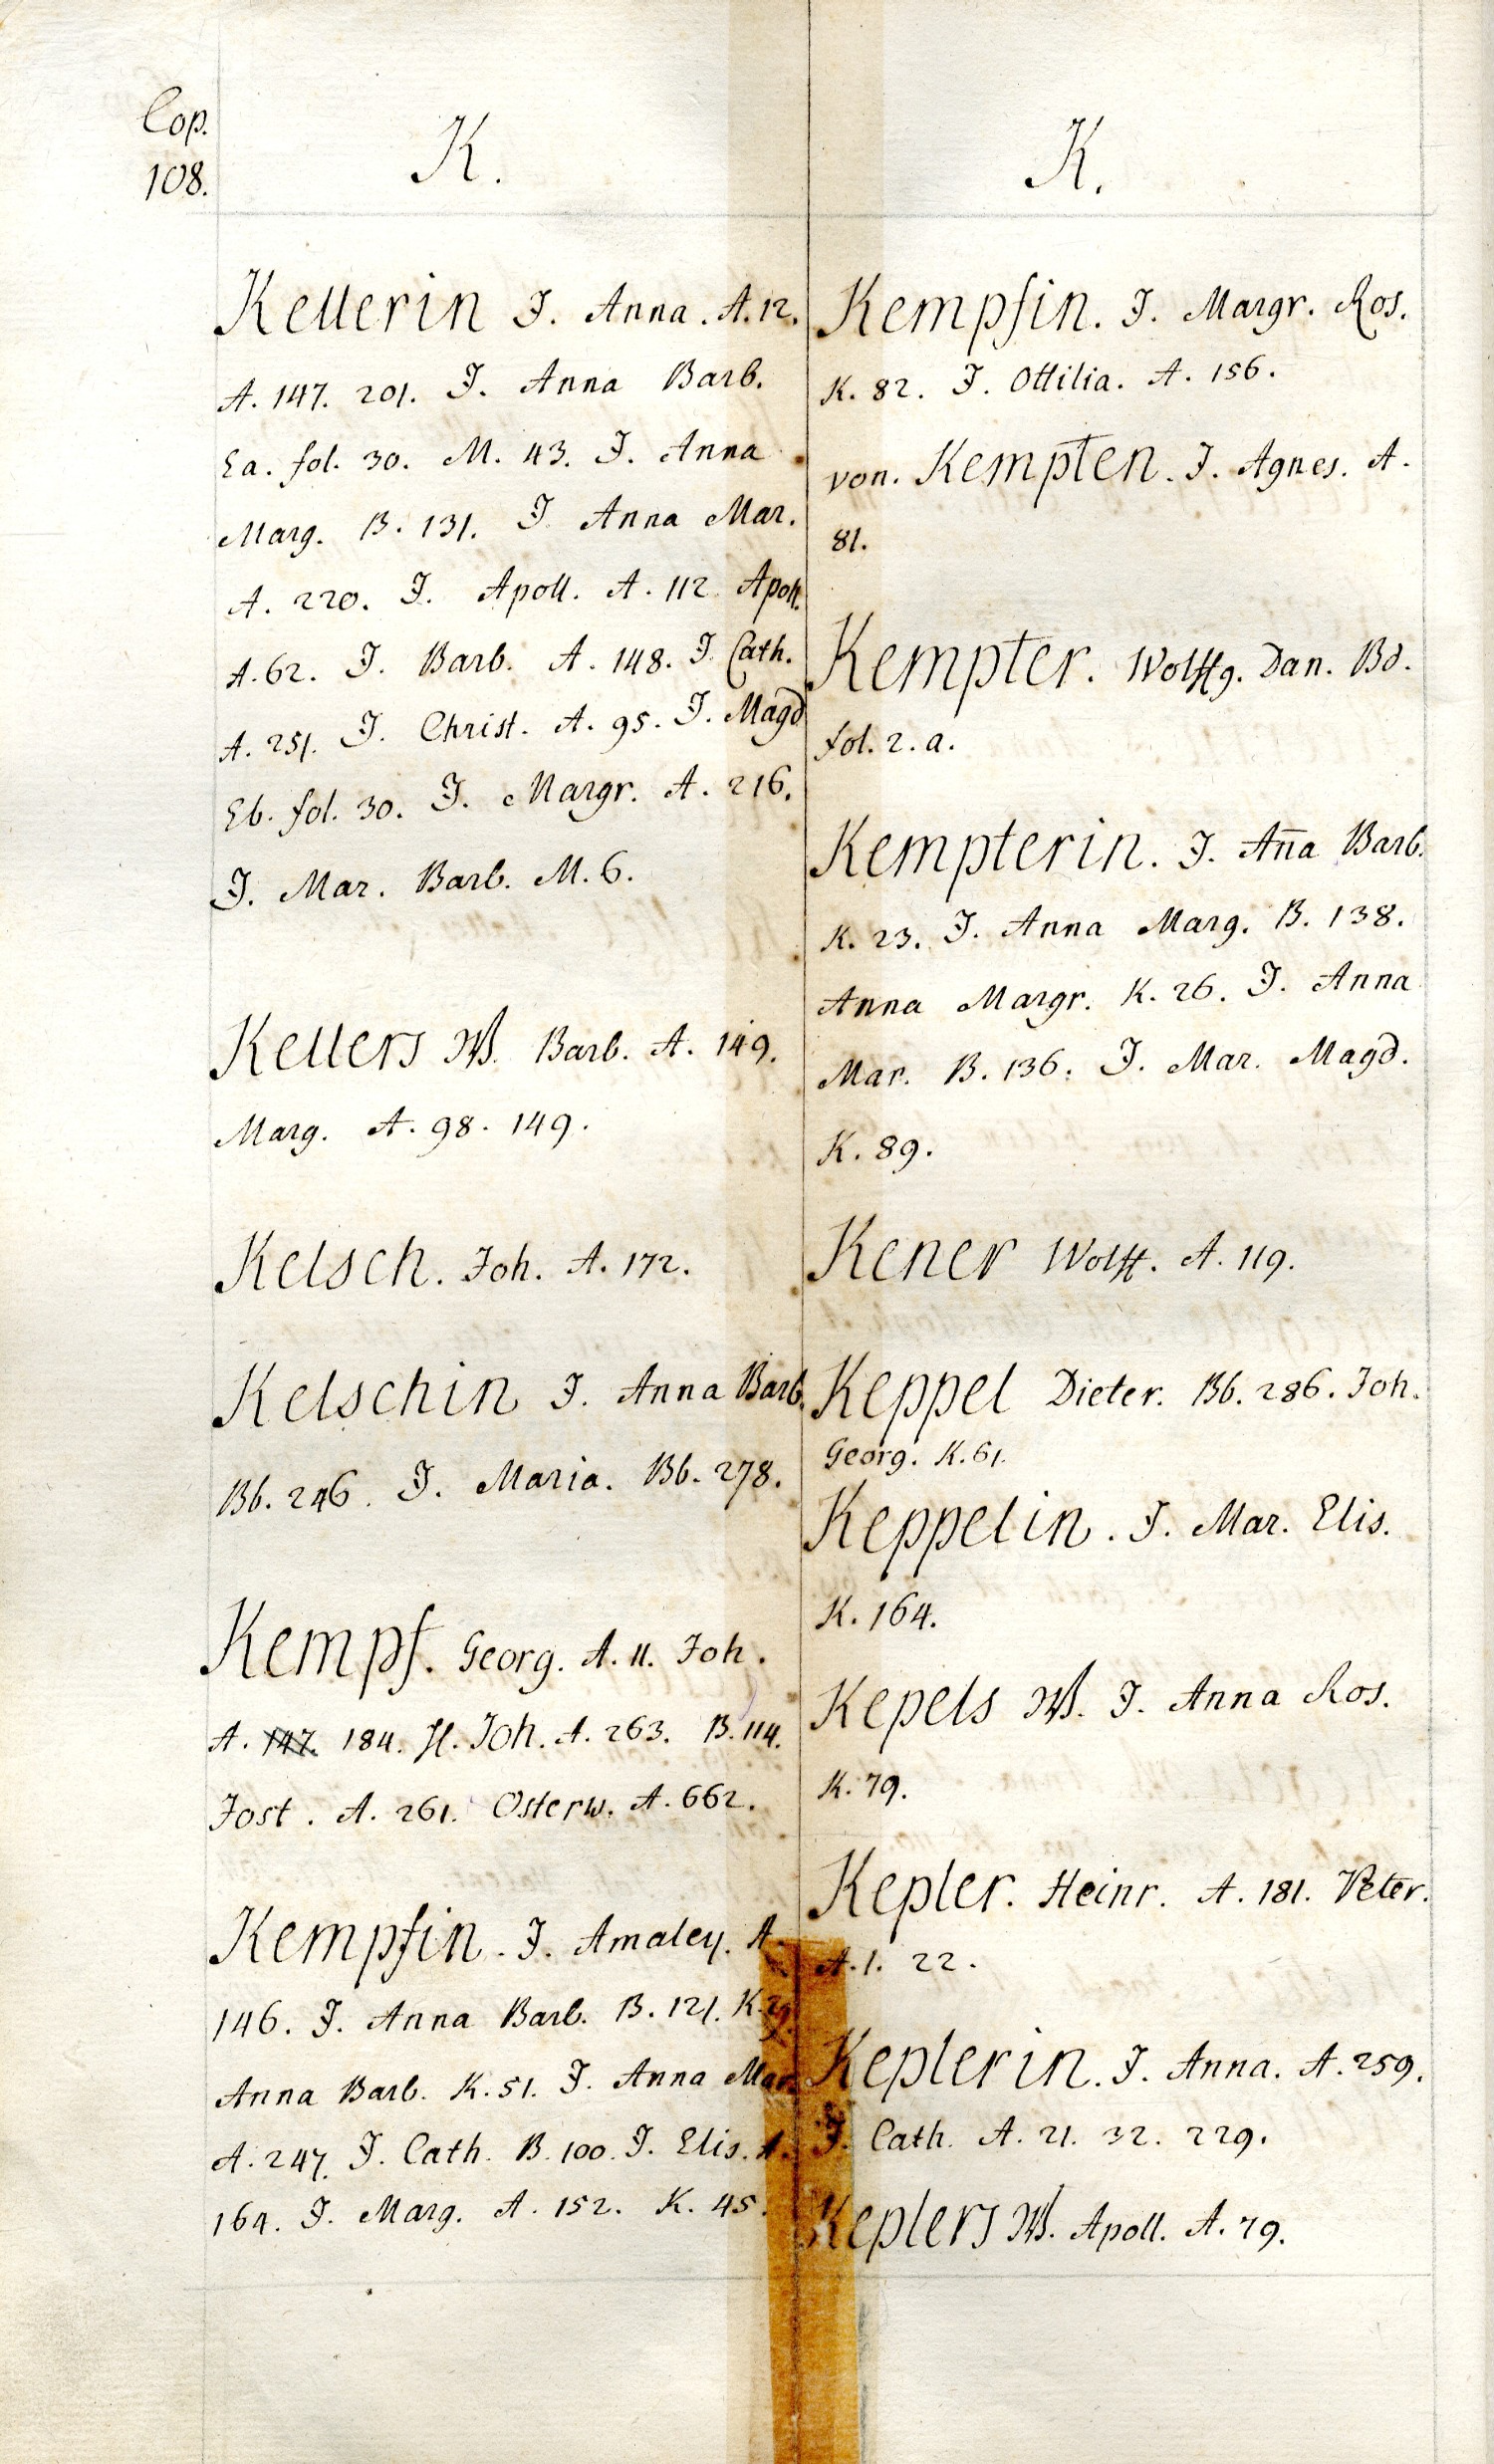 Cop.
108.
K.
Kellerin J. Anna. A. 12.
A. 147. 201. J. Anna Barb.
Ea. fol. 30. M. 43. J. Anna
Marg. B. 131. J Anna Mar.
A. 220. J. Apoll. A. 112 Apoll.
A. 62. J. Barb. A. 148. J. Cath.
A. 251. J. Christ. A. 95. J. Magd
Eb. fol. 30. J. Margr. A. 216.
J. Mar. Barb. M. 6.
Kellers W. Barb. A. 149.
Marg. A. 98. 149.
Kelsch. Joh. A. 172.
Kelschin J. Anna Barb.
Bb. 246. J. Maria. Bb. 278.
Kempf. Georg. A. 11. Joh.
A. 147. 184. H. Joh. A. 263. B. 114.
Jost. A. 261. Osterw. A. 662.
Kempfin. J. Amaley. A.
146. J. Anna Barb. B. 121. K.
Anna Barb. K. 51. J. Anna Mar.
A. 247. J. Cath. B. 100. J. Elis. A.
164. J. Marg. A. 152. K. 45.
K.
Kempfin. J. Margr. Ros.
K. 82. J. Ottilia. A. 156.
von. Kempten. J. Agnes. A.
81.
Kempter. Wolffg. Dan. Bd.
fol. 2. a.
Kempterin. J. Aña Barb.
K. 23. J. Anna Marg. B. 138.
Anna Margr. K. 26. J. Anna
Mar. B. 136. J. Mar. Magd.
K. 89.
Kener Wolff. A. 119.
Keppel Dieter. Bb. 286. Joh.
Georg. K. 61.
Keppelin. J. Mar. Elis.
K. 164.
Kepels W. J. Anna Ros.
K. 79.
Kepler. Heinr. A. 181. Peter.
A. 1. 22.
Keplerin. J. Anna. A. 259.
J. Cath. A. 21. 32. 229.
Keplers W. Apoll. A. 79.